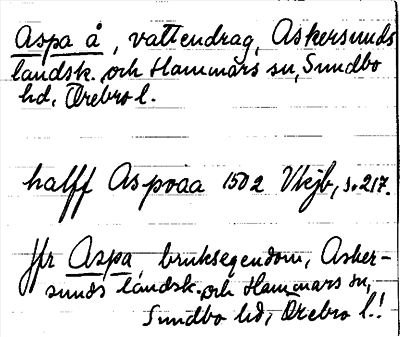 Aspa å, vattendrag, Askersunds
landsk. och Hammars sn, Sundbo
hd, Örebro l.
halff Aspoaa 1502 Vkjb, s. 217.
Jfr Aspa, bruksegendom, Asker-
sunds landsk. och Hammars sn,
Sundbo hd, Örebro l.!